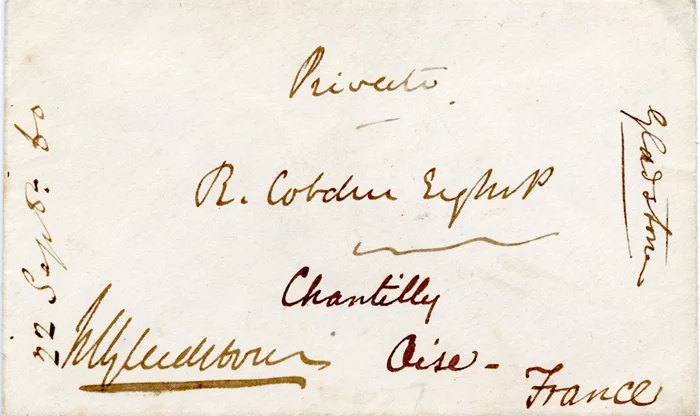 Private
R. Cobden Esq MP
Chantilly
Oise -
France
WGladstone
22 Sep 8: 60
Gladstone